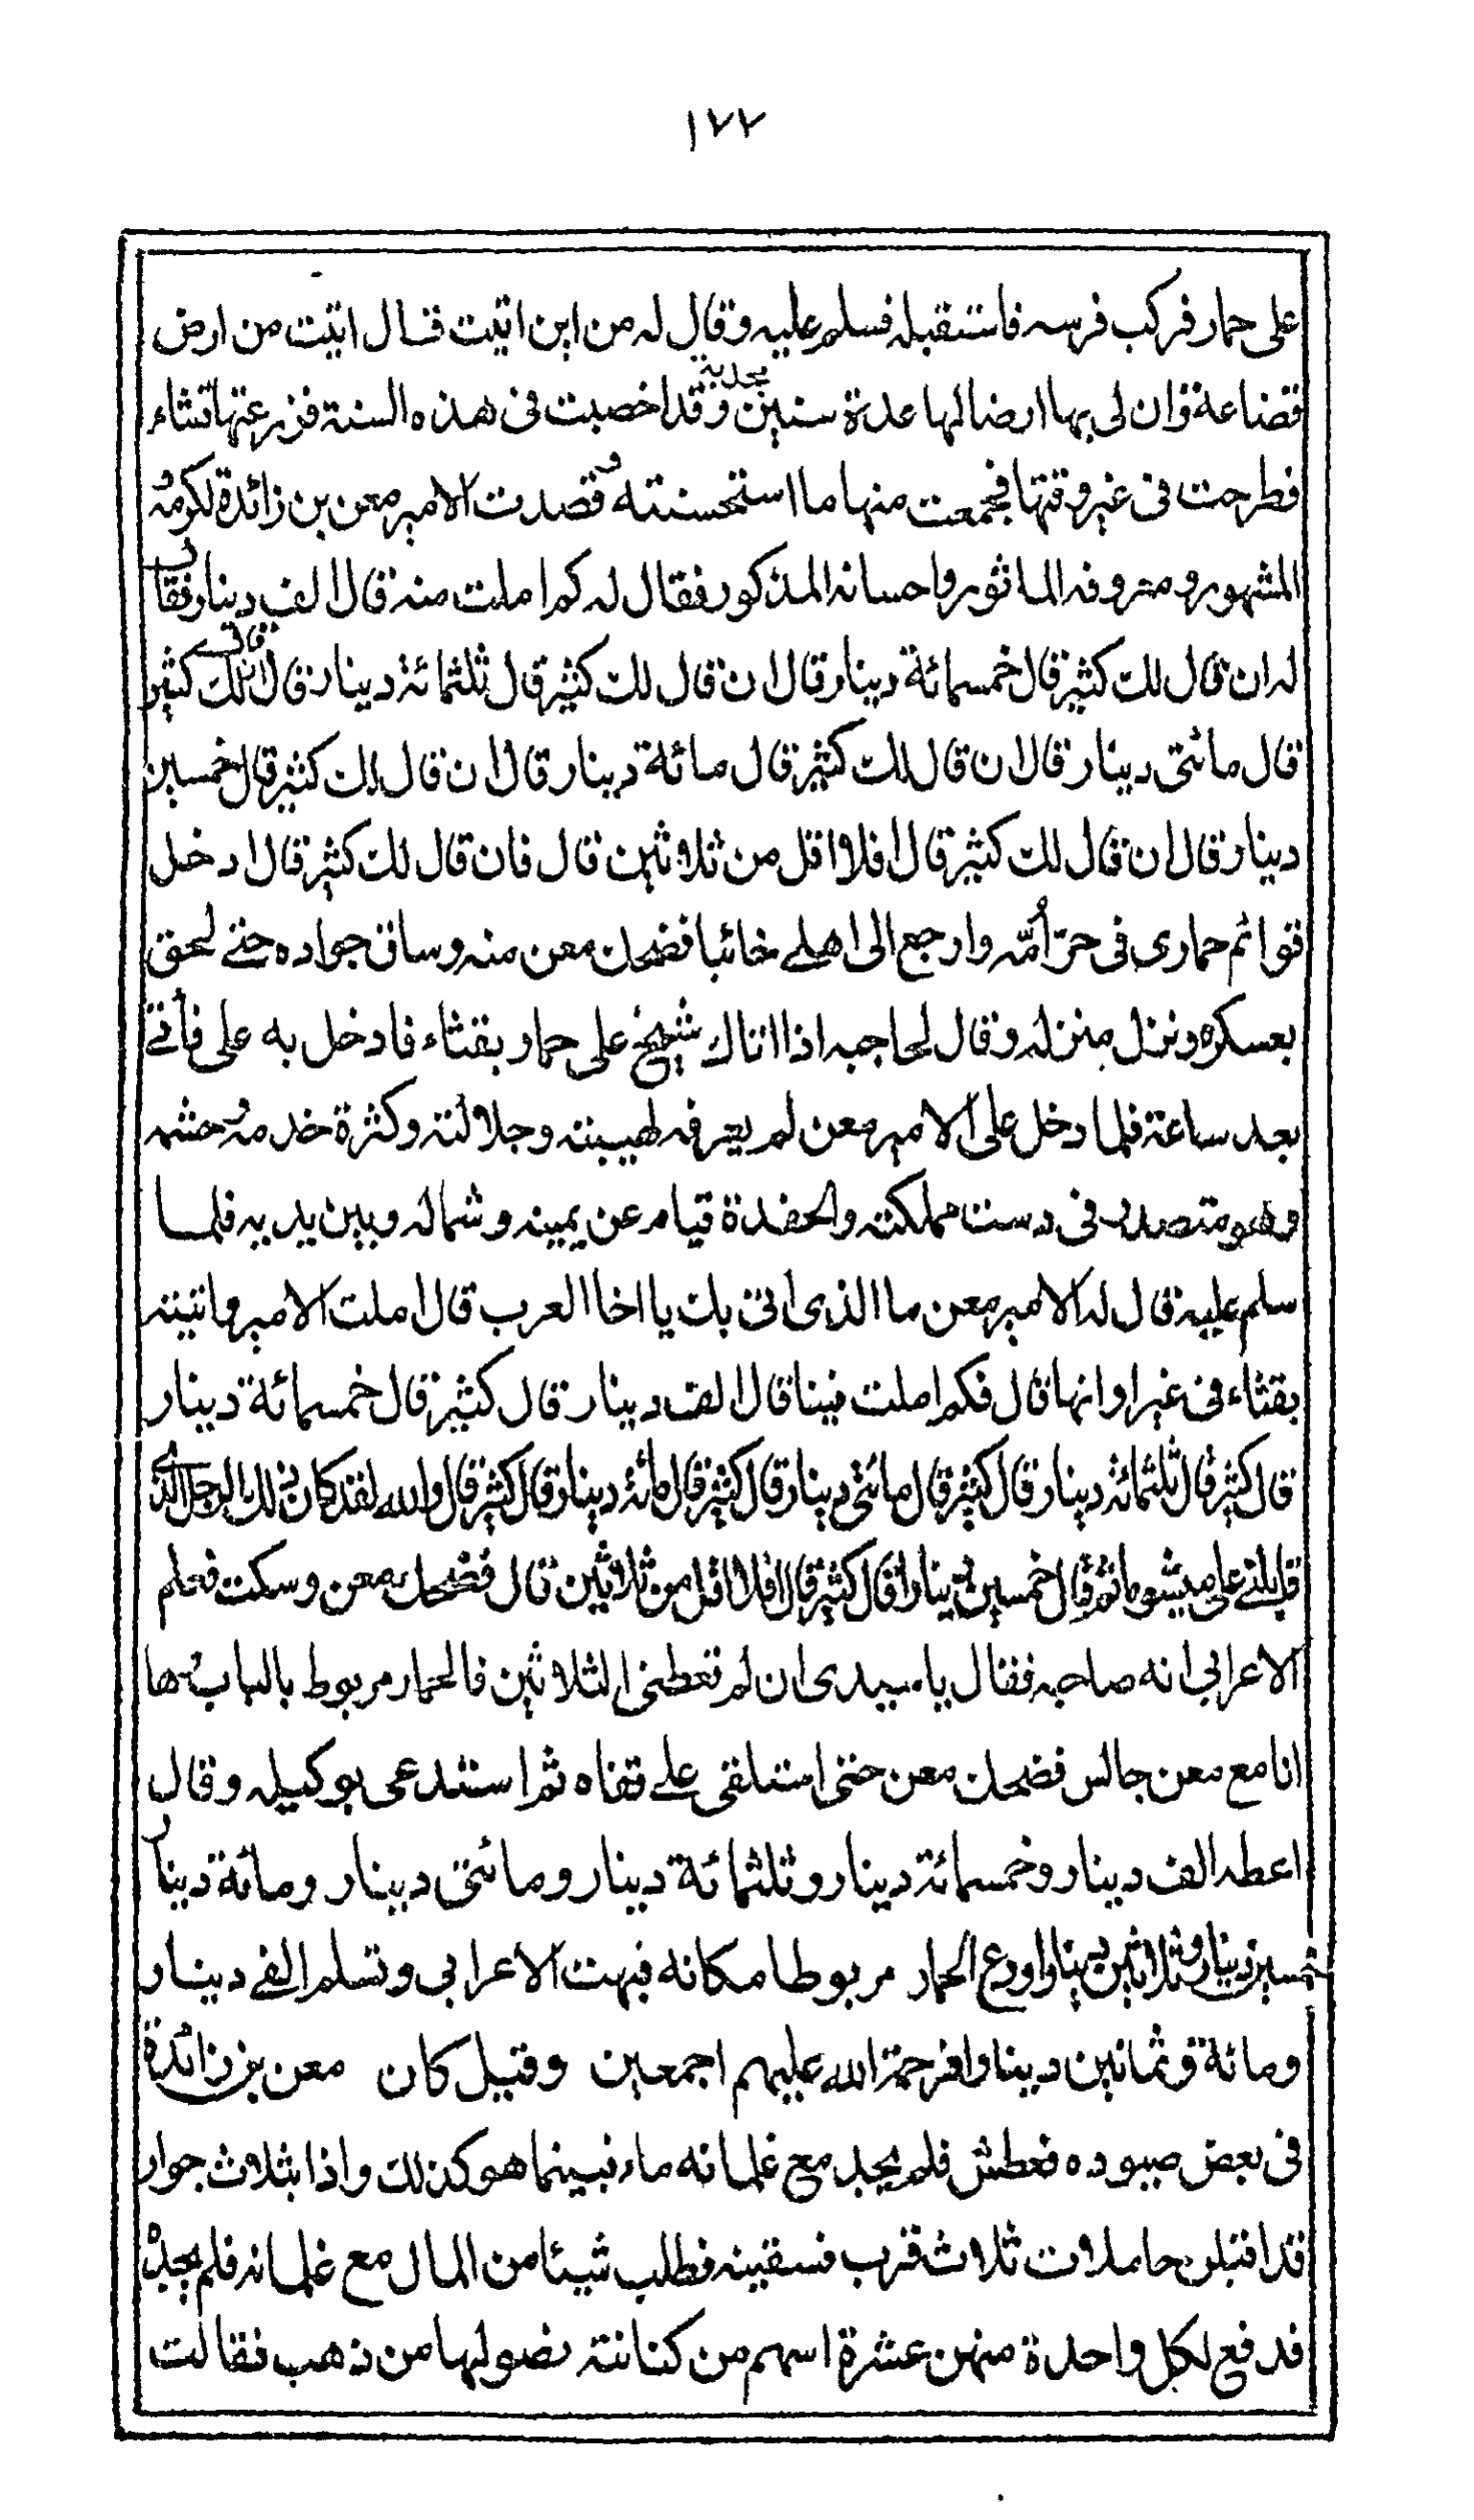 ١٧٧
على حمار فركب فرسه فاستقبله فسلم عليه وقال له من اين اتيت قال اتيت من ارض
قضاعة وان لى بها ارضا لها عدة سنين مجدبة وقد اخصبت فى هذه السنة فزرعتها قثاء
فطرحت فى غير وقتها فجمعت منها ما استحسنته وقصدت الامير معن بن زائدة لكرمه
المشهور ومعروفه الماثور واحسانه المذكور فقال له كم املت منه قال الف دينار فقال
له ان قال لك كثير قال خمسمائة دينار قال ان قال لك كثير قال ثلثمائة دينار قال ان قال لك كثير
قال مائتى دينار قال ان قال لك كثير قال مائة دينار قال ان قال لك كثير قال خمسين
دينار قال ان قال لك كثير قال افلا اقل من ثلاثين قال فان قال لك كثير قال ادخل
قوائم حمارى فى حر أمّه وارجع الى اهلے خائبا فضحك معن منه وساق جواده حتے لحق
بعسكره ونزل منزله وقال لحاجبه اذا اتاك شيخ على حمار بقثاء فادخل به على فأتے
بعد ساعة فلما دخل على الامير معن لم يعرفه لهيبته وجلالته وكثرة خدمه وحشمه
وهو متصدر فى دست مملكته والحفدة قيام عن يمينه وشماله وبين يديه فلما
سلم عليه قال له الامير معن ما الذى اتى بك يا اخا العرب قال املت الامير واتيته
بقثاء فى غير اوانها قال فكم املت فينا قال الف دينار قال كثير قال خمسمائة دينار
قال كثير قال ثلثمائة دينار قال كثير قال مائتى دينار قال كثير قال مائة دينار قال كثير قال والله لقد كان ذلك الرجل الذى
قابلنے على ميشوما ثم قال خمسين دينارا قال كثير قال افلا اقل من ثلاثين قال فضحك معن وسكت فعلم
الاعرابى انه صاحبه فقال يا سيدى ان لم تعطنى الثلاثين فالحمار مربوط بالباب وها
انا مع معن جالس فضحك معن حتى استلقى علے قفاه ثم استدعى بوكيله وقال
اعطه الف دينار وخمسمائة دينار وثلثمائة دينار ومائتى دينار ومائة دينار
خمسين دينار وثلاثين دينارا ودع الحمار مربوطا مكانه فبهت الاعرابى وتسلم الفے دينار
ومائة وثمانين دينارا فرحمة الله عليهم اجمعين وقيل كان معن بن زائدة
فى بعض صيوده فعطش فلم يجد مع غلمانه ماء فبينما هو كذلك واذا بثلاث جوار
قد اقبلن حاملات ثلاث قرب فسقينه فطلب شيئا من المال مع غلمانه فلم يجد
فدفع لكل واحدة منهن عشرة اسهم من كنانته نصولها من ذهب فقالت